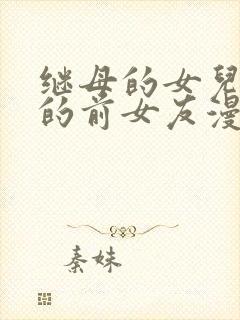 继母的女兒
的前女友漫
秦妹